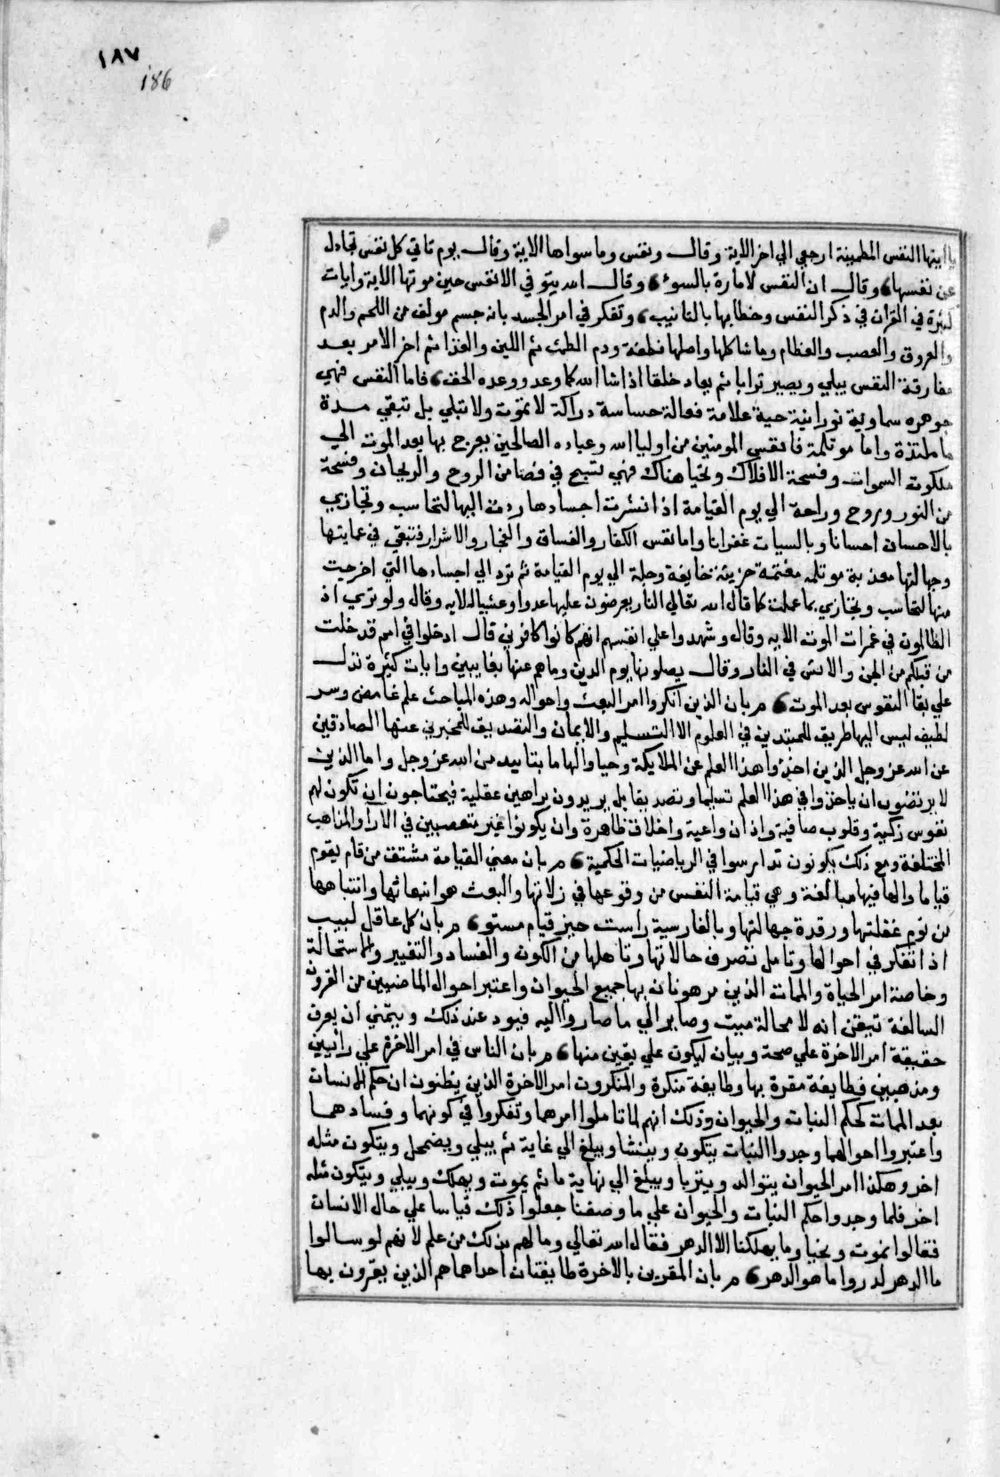 ١٨٧
186
يا ايتها النفس المطمينة ارجعي الي اخر الاية وقال ونفس وما سواها الاية وقال يوم تاتي كل نفس تجادل
عن نفسها وقال ان النفس لامارة بالسوء وقال الله يتوفي الانفس حين موتها الاية وايات
كثيرة في القران في ذكر النفس وخطابها بالتانيب وتفكر في امر الجسد بانه جسم مولف من اللحم والدم
والعروق والعصب والعظام وما شاكلها واصلها نطفة ودم الطمث ثم اللبن والغذا ثم اخر الامر بعد
مفارقة النفس يبلي ويصير ترابا ثم يعاد خلقا اذا شا الله كما وعد ووعده الحق فاما النفس فهي
جوهره سماوية نورانية حية علامة فعالة حساسة دراكة لا تموت ولا تبلي بل تبقي مدة
ما ملتذة واما موتلمة فانفس المومنين من اوليا الله وعباده الصالحين يعرج بها بعد الموت الي
ملكوت السموات وفسحة الافلاك وتحيا هناك فهي تسبح في فضا من الروح والريحان وفسحة
من النور وروح وراحة الي يوم القيامة اذا نشرت اجسادها ردت اليها لتحاسب وتجازي
بالاحسان احسانا وبالسيات غفرانا واما نفس الكفار والفساق والفجار والاشرار فتبقي في عمايتها
وجهالتها معذبة موتلمه مغتمة حزينة خايفة وجلة الي يوم القيامة ثم ترد الي اجسادها التي اخرجت
منها لتحاسب وتجازي بما عملت كما قال الله تعالي النار يعرضون عليها غدوا وعشيا الايه وقال ولو تري اذ
الظالمون في غمرات الموت الايه وقال وشهدوا علي انفسهم انهم كانوا كافرين قال ادخلوا في امم قد خلت
من قبلكم من الجن والانس في النار وقال يصلونها يوم الدين وما هم عنها بغايبين وايات كثيرة تدل
علي بقا النفوس بعد الموت م بان الذين انكروا امر البعث واحواله وهذه المباحث علم غامض وسر
لطيف ليس اليها طريق للمبتدين في العلوم الا التسليم والايمان والتصديق للمخبرين عنها الصادقين
عن الله عز وجل الذين اخذوا هذا العلم عن الملايكة وحيا والهاما بتاييد من الله عز وجل واما الذين
لا يرتضون ان ياخذوا في هذا العلم تسليما وتصديقا بل يريدون براهين عقلية فيحتاجون ان تكون لهم
نفوس زكية وقلوب صافية واذان واعية واخلاق ظاهرة وان يكونوا غير متعصبين في الارا والمذاهب
المختلفة ومع ذلك يكونون تدارسوا في الرياضيات الحكمية م بان معني القيامة مشتق من قام يقوم
قياما والها فيها مبالغة وهي قيامة النفس من وقوعها في زلاتها والبعث هو انبعاثها وانتباهها
من نوم غفلتها ورقدة جهالتها وبالفارسية راست خيز قيام مستو م بان كل عاقل لبيب
اذا تفكر في احوالها وتامل تصرف حالاتها وتاملها من الكون والفساد والتغيير والاستحالة
وخاصة امر الحياة والممات الذين مرهونان بها جميع الحيوان واعتبر احوال الماضيين من القرون
السالفة تيقن انه لا محالة ميت وصاير الي ما صاروا اليه فيود عند ذلك ويتمني ان يعرف
حقيقة امر الاخرة علي صحة وبيان ليكون علي يقين منها م بان الناس في امر الاخرة علي رائيين
ومذهبين فطايفة مقرة بها وطايفة منكرة والمنكرون امر الاخرة الذين يظنون ان حكم الانسان
بعد الممات كحكم النبات والحيوان وذلك انهم لما تاملوا امرهما وتفكروا في كونهما وفسادهما
واعتبروا احوالهما وجدوا النبات يتكون وينشا ويبلغ الي غاية ثم يبلي ويضمحل ويتكون مثله
اخر وهكذا امر الحيوان يتوالد ويتربا ويبلغ الي نهاية ما ثم يموت ويهلك ويبلي ويتكون مثله
اخر فلما وجدوا حكم النبات والحيوان علي ما وصفنا جعلوا ذلك قياسا علي حال الانسان
فقالوا نموت ونحيا وما يهلكنا الا الدهر فقال الله تعالي وما لهم بذلك من علم لانهم لو سالوا
ما الدهر لدروا ما هو الدهر م بان المقرين بالاخرة طايفتان احداهما هم الذين يقرون بها